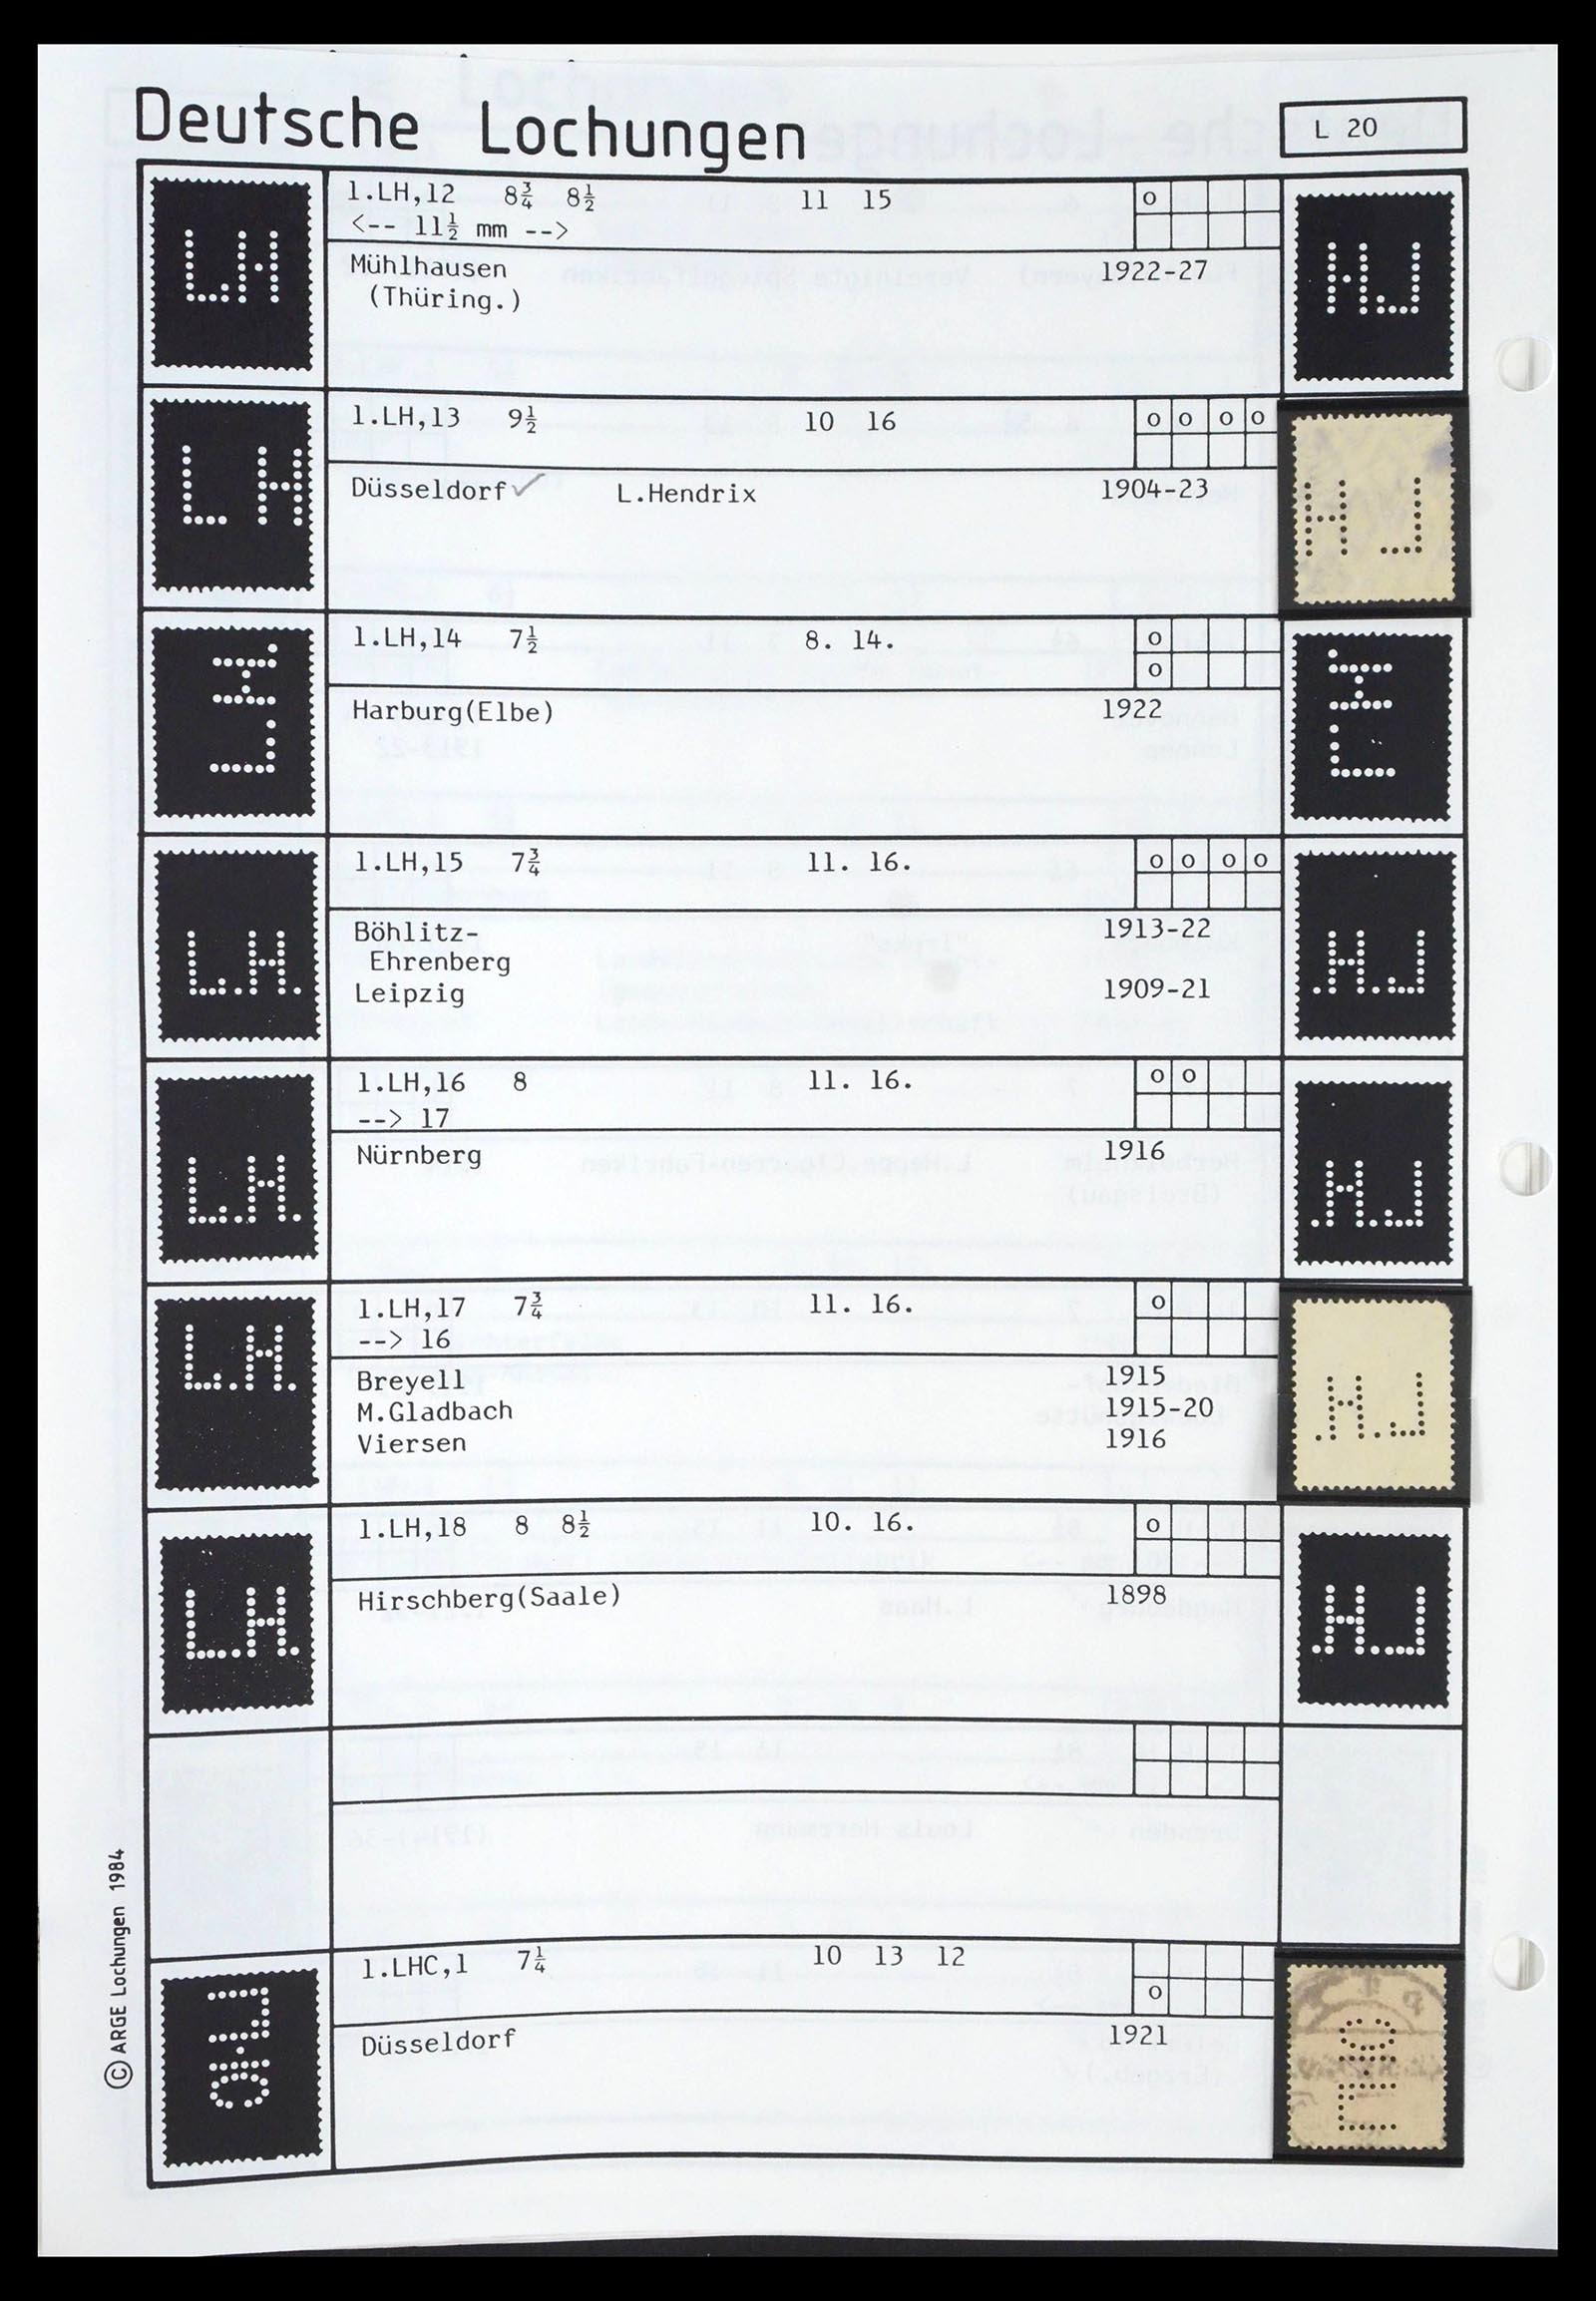 Deutsche Lochungen
L 20
LH
1.LH,12 8¾ 8½ 11 15 o
<-- 11½ mm -->
Mühlhausen 1922-27
(Thüring.)
LH
1.LH,13 9½ 10 16 o o o o
Düsseldorf ✓ L.Hendrix 1904-23
LH
1.LH,14 7½ 8. 14. o
o
Harburg(Elbe) 1922
L.H.
1.LH,15 7¾ 11. 16. o o o o
Böhlitz- 1913-22
Ehrenberg
Leipzig 1909-21
L.H.
1.LH,16 8 11. 16. o o
--> 17
Nürnberg 1916
L.H.
1.LH,17 7¾ 11. 16. o
--> 16
Breyell 1915
M.Gladbach 1915-20
Viersen 1916
L.H.
1.LH,18 8 8½ 10. 16. o
Hirschberg(Saale) 1898
LHC
1.LHC,1 7¼ 10 13 12
o
Düsseldorf 1921
© ARGE Lochungen 1984